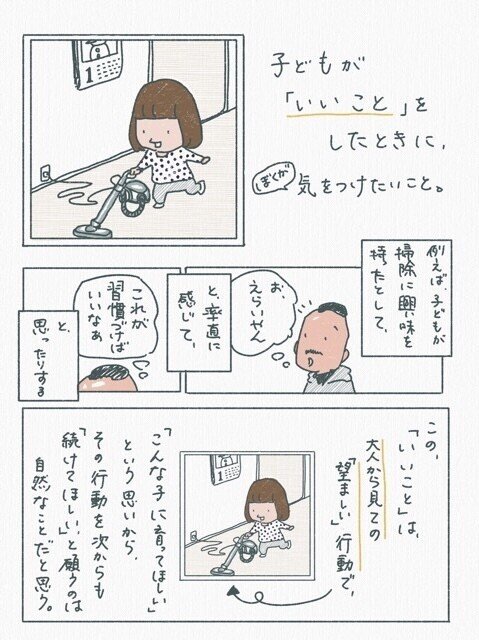 子どもが
「いいこと」を
したときに、
ぼくが
気をつけたいこと。
1
例えば、子どもが
掃除に興味を
持ったとして、
お、
えらいやん
と、率直に
感じて、
これが
習慣づけば
いいなぁ
と、
思ったりする
この、
「いいこと」は、
大人から見ての
「望ましい」行動で、
1
「こんな子に育ってほしい」
という思いから、
その行動を次からも
「続けてほしい」と願うのは
自然なことだと思う。